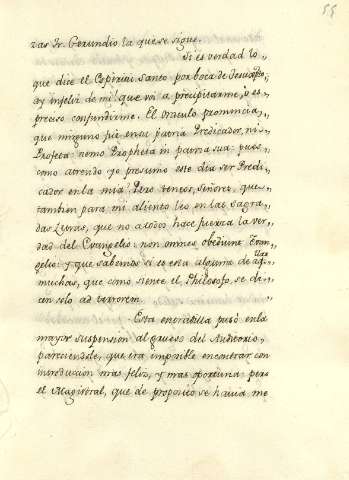 55
zas Fr. Gerundio la que se sigue.
Si es verdad lo
que dice el Espiritu santo por boca de Jesuchristo,
ay infeliz de mi! que voi a precipitarme, o es
preciso confundirme. El oraculo pronuncia,
que ninguno fue en su patria Predicador, ni
Profeta: nemo Propheta in patria sua: pues
como atrendo yo presumo este dia ser Predi-
cador en la mia? Pero teneos, Señores, que
tambien para mi aliento leo en las sagra-
das Letras, que no a todos hace fuerza la ver-
dad del Evangelio: non omnes obediunt Evan-
gelio: y que sabemos si es esta alguna de aq-
llas
muchas, que como siente el Philosofo, se di-
cen solo ad terrorem
Esta entradilla puso en la
mayor suspension al grueso del Auditorio
pareciendole, que era imposible encontrar con
introduccion mas feliz, y mas oportuna: pero
el Magistral, que de proposito se havia me